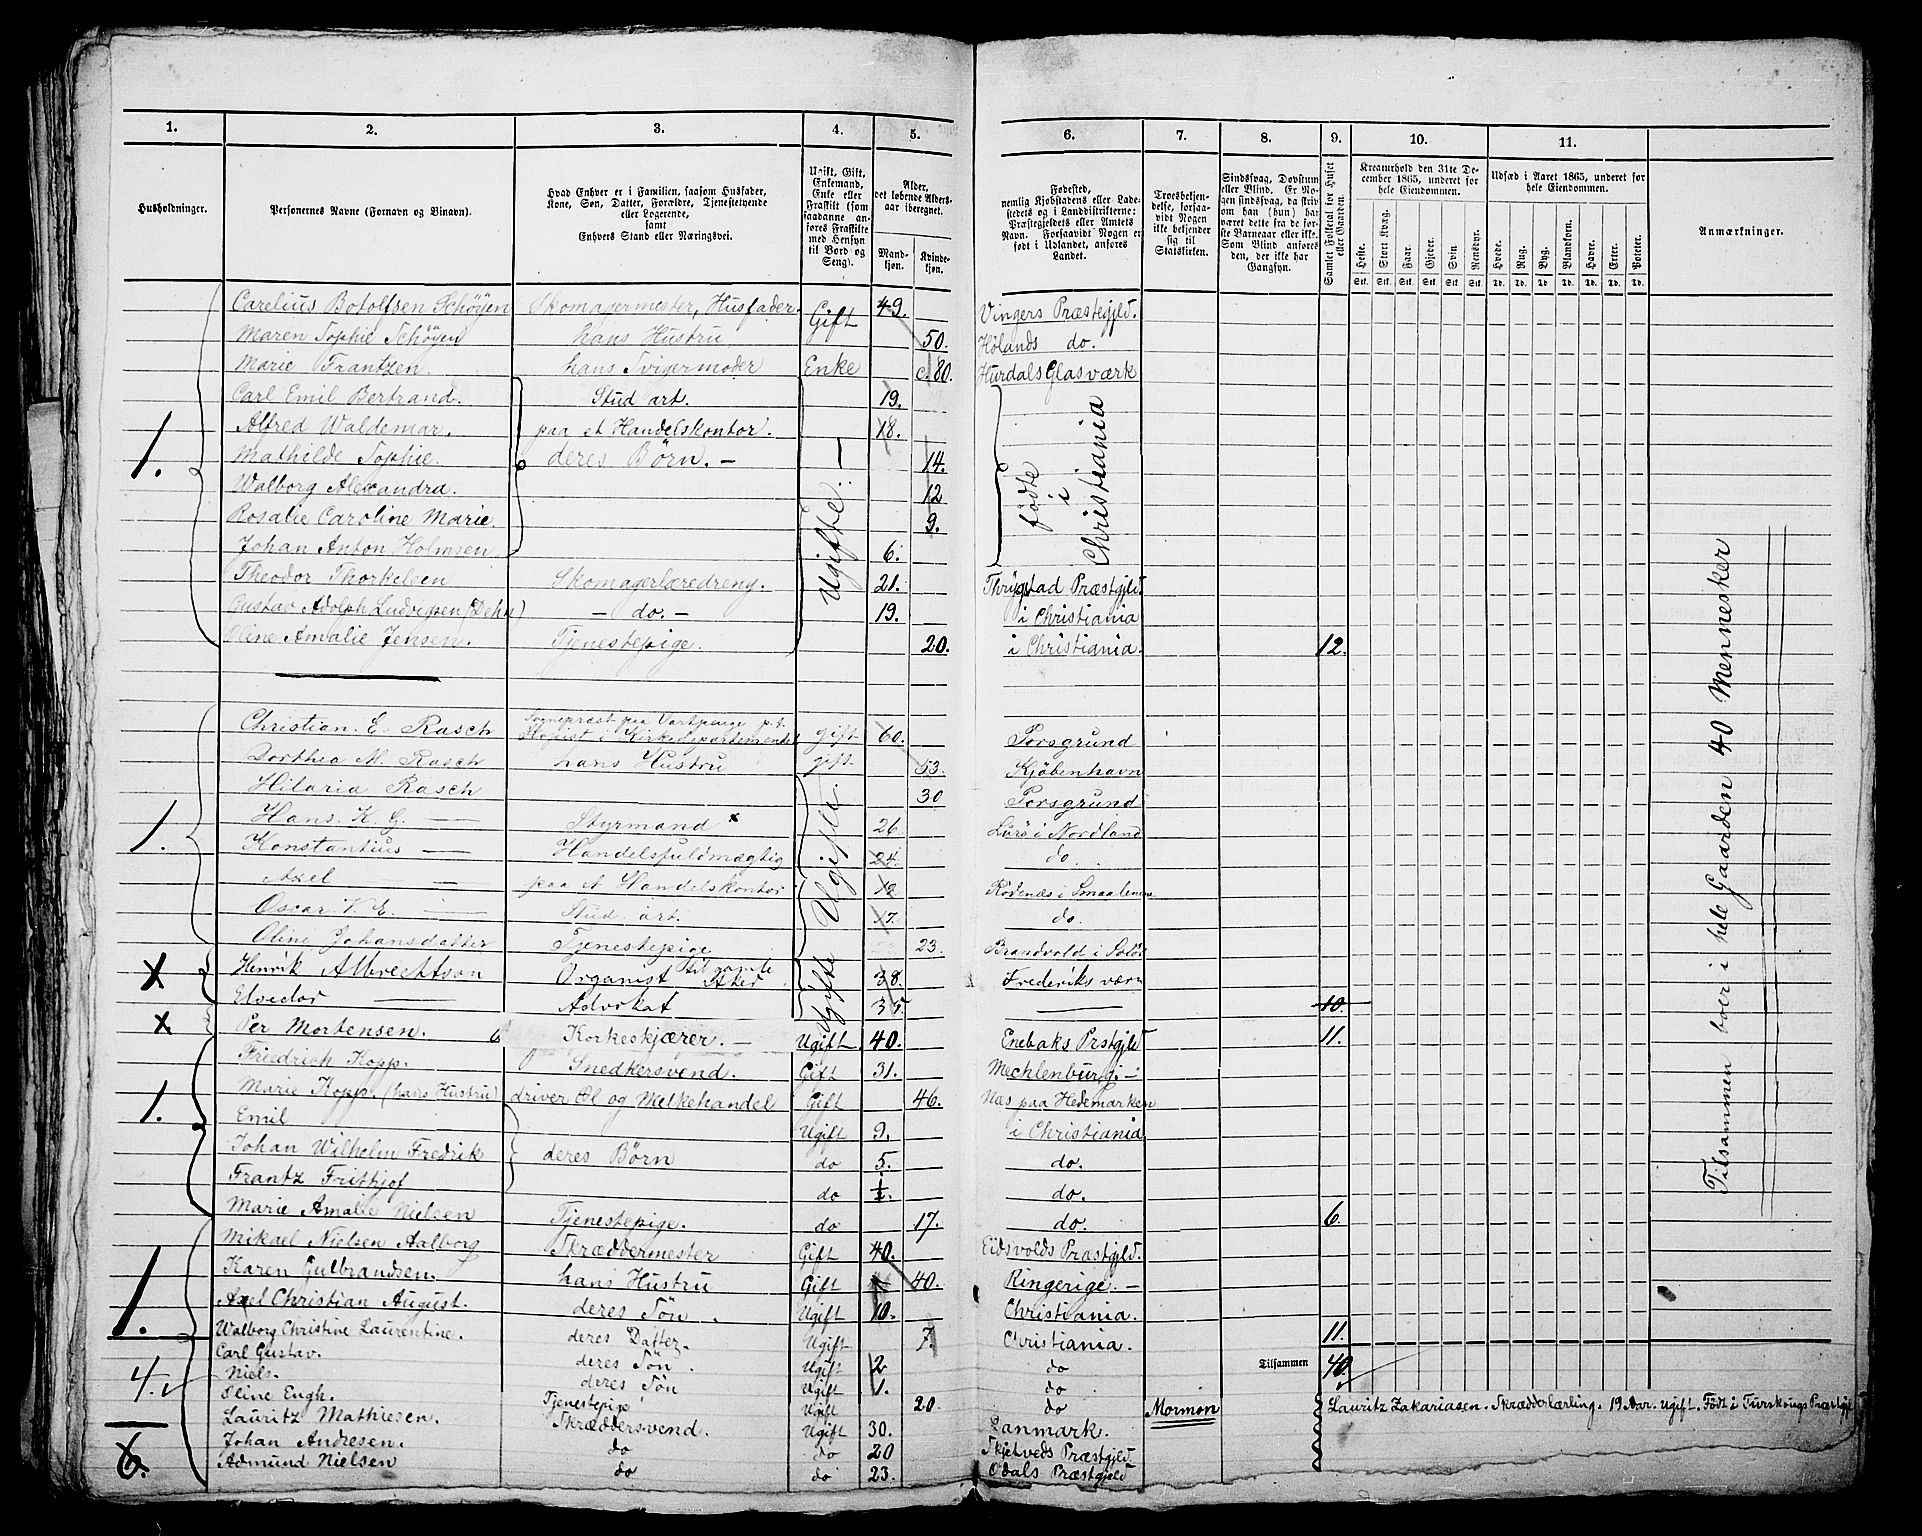 1. 2. 3. 4. 5. 6. 7. 8. 9. 10. 11.
Husholdninger.
Personernes Navne (Fornavn og Binavn).
Hvad Enhver er i Familien, saasom Husfader,
Kone, Søn, Datter, Forældre, Tjenestetyende
eller Logerende,
samt
Enhvers Stand eller Næringsvei.
Ugift, Gift,
Enkemand,
Enke eller
Fraskilt (som
saadanne an-
føres Fraskilte
med Hensyn
til Bord og
Seng).
Alder,
det løbende Alders-
aar iberegnet.
Mand-
kjøn.
Kvinde-
kjøn.
Fødested,
nemlig Kjøbstadens eller Lade-
stedets og i Landdistrikterne:
Præstegjeldets eller Amtets
Navn. Forsaavidt Nogen er
født i Udlandet, anføres
Landet.
Troesbekjen-
delse, forsaa-
vidt Nogen
ikke bekjender
sig til
Statskirken.
Sindssvag, Døvstum
eller Blind. Er No-
gen sindssvag, da skriv
om han (hun) har
været dette fra de før-
ste Barneaar eller ikke.
Som Blind anføres
den, der ikke har
Gangsyn.
Samlet Folketal for Huset
eller Gaarden.
Kreaturhold den 31te De-
cember 1865, underet for
hele Eiendommen.
Heste. Stort Kvæg. Faar. Gjeder. Svin. Rensdyr.
Stk. Stk. Stk. Stk. Stk. Stk.
Udsæd i Aaret 1865, underet for
hele Eiendommen.
Hvede. Rug. Byg. Blandkorn. Havre. Erter. Poteter.
Td. Td. Td. Td. Td. Td. Td.
Anmærkninger.
Carelius Botolfsen Schøyen Skomagermester, Husfader. Gift 49. Vingers Præstegjeld.
Maren Sophie Schøyen hans Hustru 50. Hølands do.
Marie Frantzen. hans Svigermoder Enke c. 80. Hurdals Glasværk
Carl Emil Bertrand. Stud art. 19.
1. Alfred Waldemar. paa et Handelskontor. 18.
Mathilde Sophie. deres Børn. — 14.
Walborg Alexandra. 12
Rosalie Caroline Marie 9.
Johan Anton Holmsen 6.
Ugifte. —
fødte i Christiania
Theodor Thorkelsen Skomagerlæredreng. 21. Thrygstad Præstgjeld.
Gustav Adolph Ludvigsen (Dehn) — do. — 19. i Christiania
Oline Amalie Jensen. Tjenestepige. 20. i Christiania. 12.
Christian. E. Rasch Sognepræst paa Vartpenge p.t. Kopist i Kirkedepartementet gift 60. Porsgrund
Dorthea M. Rasch hans Hustru gift. 53. Kjøbenhavn
Hilaria Rasch 30 Porsgrund
1. Hans. K. G. — Styrmand x 26 Lurø i Nordland
Konstantius — Handelsfuldmægtig 24. do.
Axel — paa et Handelskontor Rødenæs i Smaalenene
Oscar. V. E. — Stud. art. 17. do.
Oline Johansdatter Tjenestepige 23. Brandvold i Solør
Ugifte.
x Henrik Albrechtson Organist 38. Frederiksværn
Elsedor — Advokat 35 — 10.
Ugifte
x Per Mortensen. Korkeskjærer. — Ugift 40. Enebaks Prstgjeld 11.
Friedrich Kopp. Snedkersvend. Gift 31. Mechlenburg. —
1. Marie Kopp. (hans Hustru) driver Øl og Melkehandel Gift 46. Næs paa Hedemarken
Emil Ugift 9. i Christiania
Johan Wilhelm Fredrik deres Børn do 5. do.
Frantz Frithjof do 1/2. do.
Marie Amalie Nielsen Tjenestepige. do 17. do. 6.
Mikael Nielsen Aalborg Skræddermester Gift 40. Eidsvolds Præstgjeld.
1. Karen Gulbrandsen. hans Hustru Gift 40. Ringerige. —
Axel Christian August. deres Søn. Ugift 10. Christiania.
Walborg Christine Laurentine. deres Datter Ugift 7. Christiania. 11.
Carl Gustav. deres Søn. Ugift 2 do Tilsammen 40.
4. Niels. deres Søn Ugift 1. do
Oline Engh. Tjenestepige Ugift 20. do Mormon
Lauritz Zakariasen. Skrædderlærling. 19 Aar. ugift. Født i
Lauritz Mathiesen. Skræddersvend. Ugift 30. Danmark.
6. Johan Andresen. do do 20 Skjetveds Præstgjeld.
Admund Nielsen do do 23. Odals Præstgjeld
Tilsammen boer i hele Gaarden 40 Mennesker